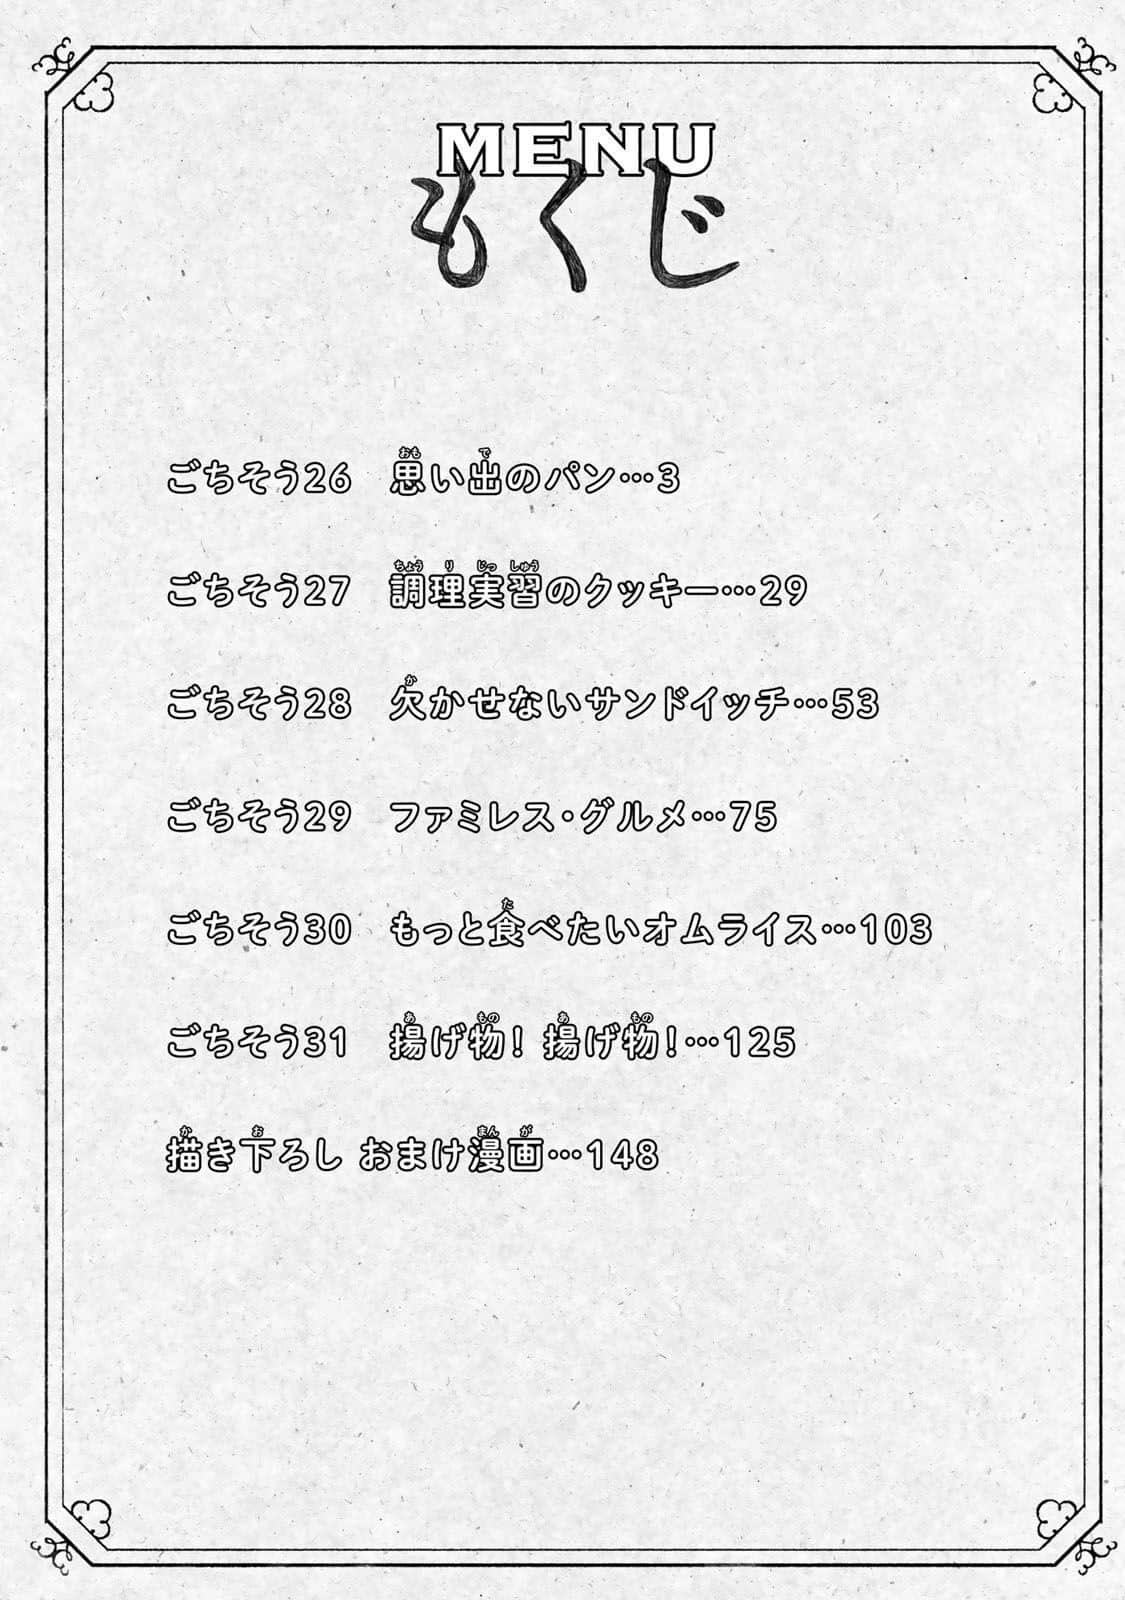 MENU
もくじ
ごちそう26　思い出のパン…3
ごちそう27　調理実習のクッキー…29
ごちそう28　欠かせないサンドイッチ…53
ごちそう29　ファミレス・グルメ…75
ごちそう30　もっと食べたいオムライス…103
ごちそう31　揚げ物！ 揚げ物！…125
描き下ろし おまけ漫画…148